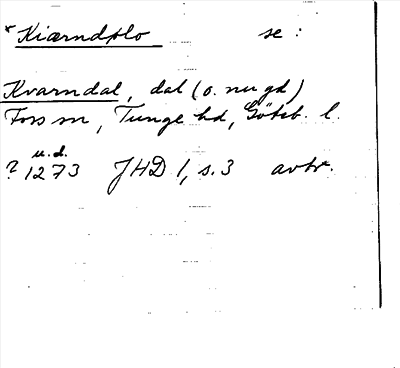 * Kiærndplo se:
Kvarndal, dal (o. nu gd)
Foss sn, Tunge hd, Göteb. l.
u.d.
? 1273 JHD 1, s. 3 avtr.